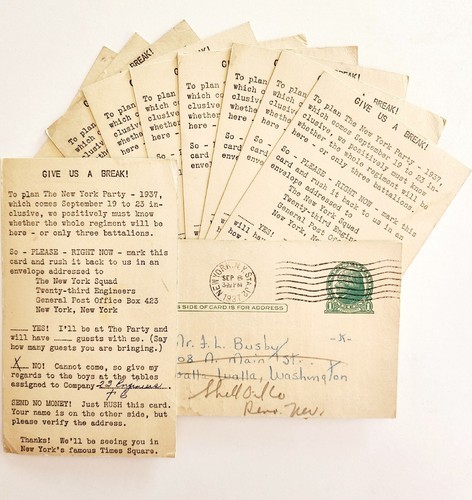 GIVE US A BREAK!
To plan The New York Party - 1937,
which comes September 19 to 23 in-
clusive, we positively must know
whether the whole regiment will be
here - or only three battalions.
So - PLEASE - RIGHT NOW - mark this
card and rush it back to us in an
envelope addressed to
The New York Squad
Twenty-third Engineers
General Post Office Box 423
New York, New York
____ YES! I'll be at The Party and
will have ____ guests with me. (Say
how many guests you are bringing.)
X NO! Cannot come, so give my
regards to the boys at the tables
assigned to Company 23 Engineers
SEND NO MONEY! Just RUSH this card.
Your name is on the other side, but
please verify the address.
Thanks! We'll be seeing you in
New York's famous Times Square.
BREAK!
To plan
which c
clusive
whether
here -
So -
card
BREAK!
GIVE US A BREAK!
To plan The New York Party - 1937,
which comes September 19 to 23 in-
clusive, we positively must know
whether the whole regiment will be
here - or only three battalions.
So - PLEASE - RIGHT NOW - mark this
card and rush it back to us in an
envelope addressed to
The New York Squad
Twenty-third Engineers
General Post Office
New York, New York
YES!
NEW YORK, N.Y.
SEP 8
1937
THIS SIDE OF CARD IS FOR ADDRESS
Mr. F.L. Busby
N. Main St.
Walla Walla, Washington
-K-
Shell Oil Co
Reno. Nev.